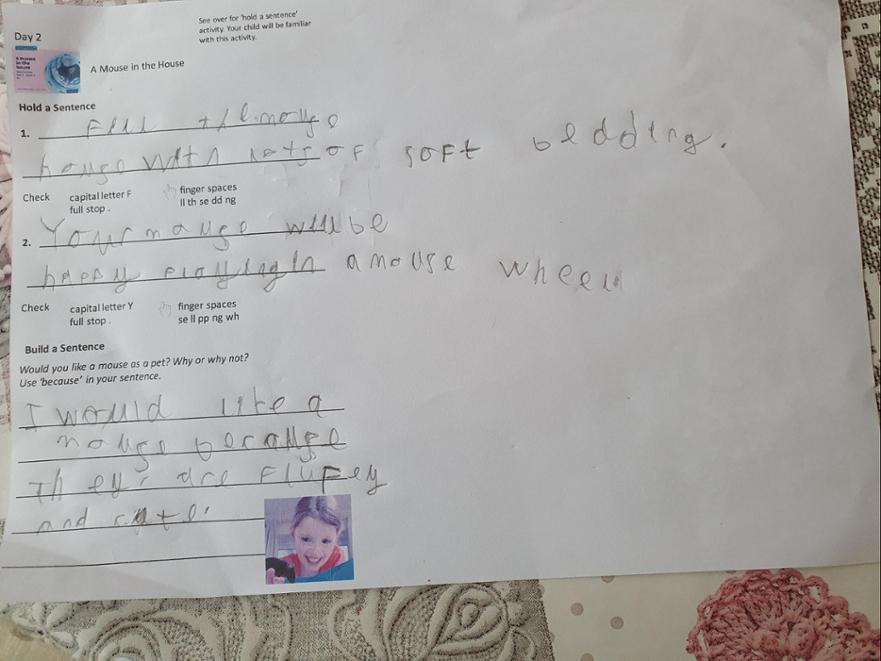 Day 2
See over for 'hold a sentence'
activity. Your child will be familiar
with this activity.
A mouse
in the
house
A Mouse in the House
Hold a Sentence
1. Fill the mouse
house with lots of soft bedding.
Check capital letter F finger spaces
full stop . ll th se dd ng
2. Your mouse will be
happy playing in a mouse wheel
Check capital letter Y finger spaces
full stop . se ll pp ng wh
Build a Sentence
Would you like a mouse as a pet? Why or why not?
Use 'because' in your sentence.
I would like a
mouse because
They are Flufey
and cute.